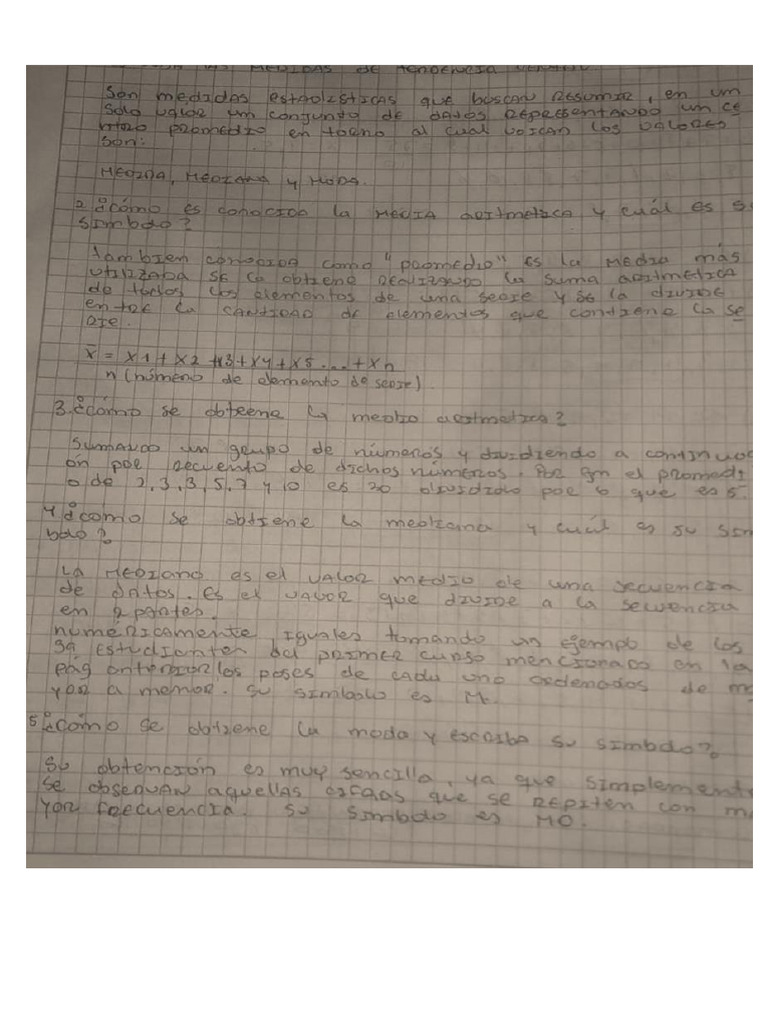 MEDIDAS DE TENDENCIA
Son medidas estadisticas que buscan resumir, en um
solo valor um conjunto de datos repersentando um ce
ntro promedio en torno al cual buscan los valores
son:
MEDIDA, MEDIANA y MODA.
2 ¿Cómo es conocido la MEDIA aritmetica y cuál es s
simbolo?
tambien conocida como "promedio" es la media más
utilizada se la obtiene realizando la suma aritmetica
de todos los elementos de una serie y se la divide
entre la cantidad de elementos que contiene la se
rie.
x̄ = x1 + x2 + x3 + x4 + x5 ... + xn
n (número de elemento de serie)
3. ¿cómo se obteene la medio aritmetica?
Sumando un grupo de números y dividiendo a continuac
ón por recuento de dichos números. Por el promedi
o de 2, 3, 3, 5, 7 y 10 es 30 dividido por 6 que es 5.
4 ¿como se obtiene la mediana y cuál es su sim
bolo?
La mediano es el valor medio de una secuencia
de datos. es el valor que divide a la secuencia
en 2 partes.
numéricamente iguales tomando un ejemplo de los
39 estudiantes del primer curso mencionado en la
pág anterior los peses de cada uno ordenados de ma
yor a menor. su simbolo es M.
5 ¿Cómo se obtiene la moda y escriba su simbolo?
Su obtención es muy sencilla, ya que simplement
se observan aquellas cifras que se repiten con ma
yor frecuencia. su simbolo es MO.